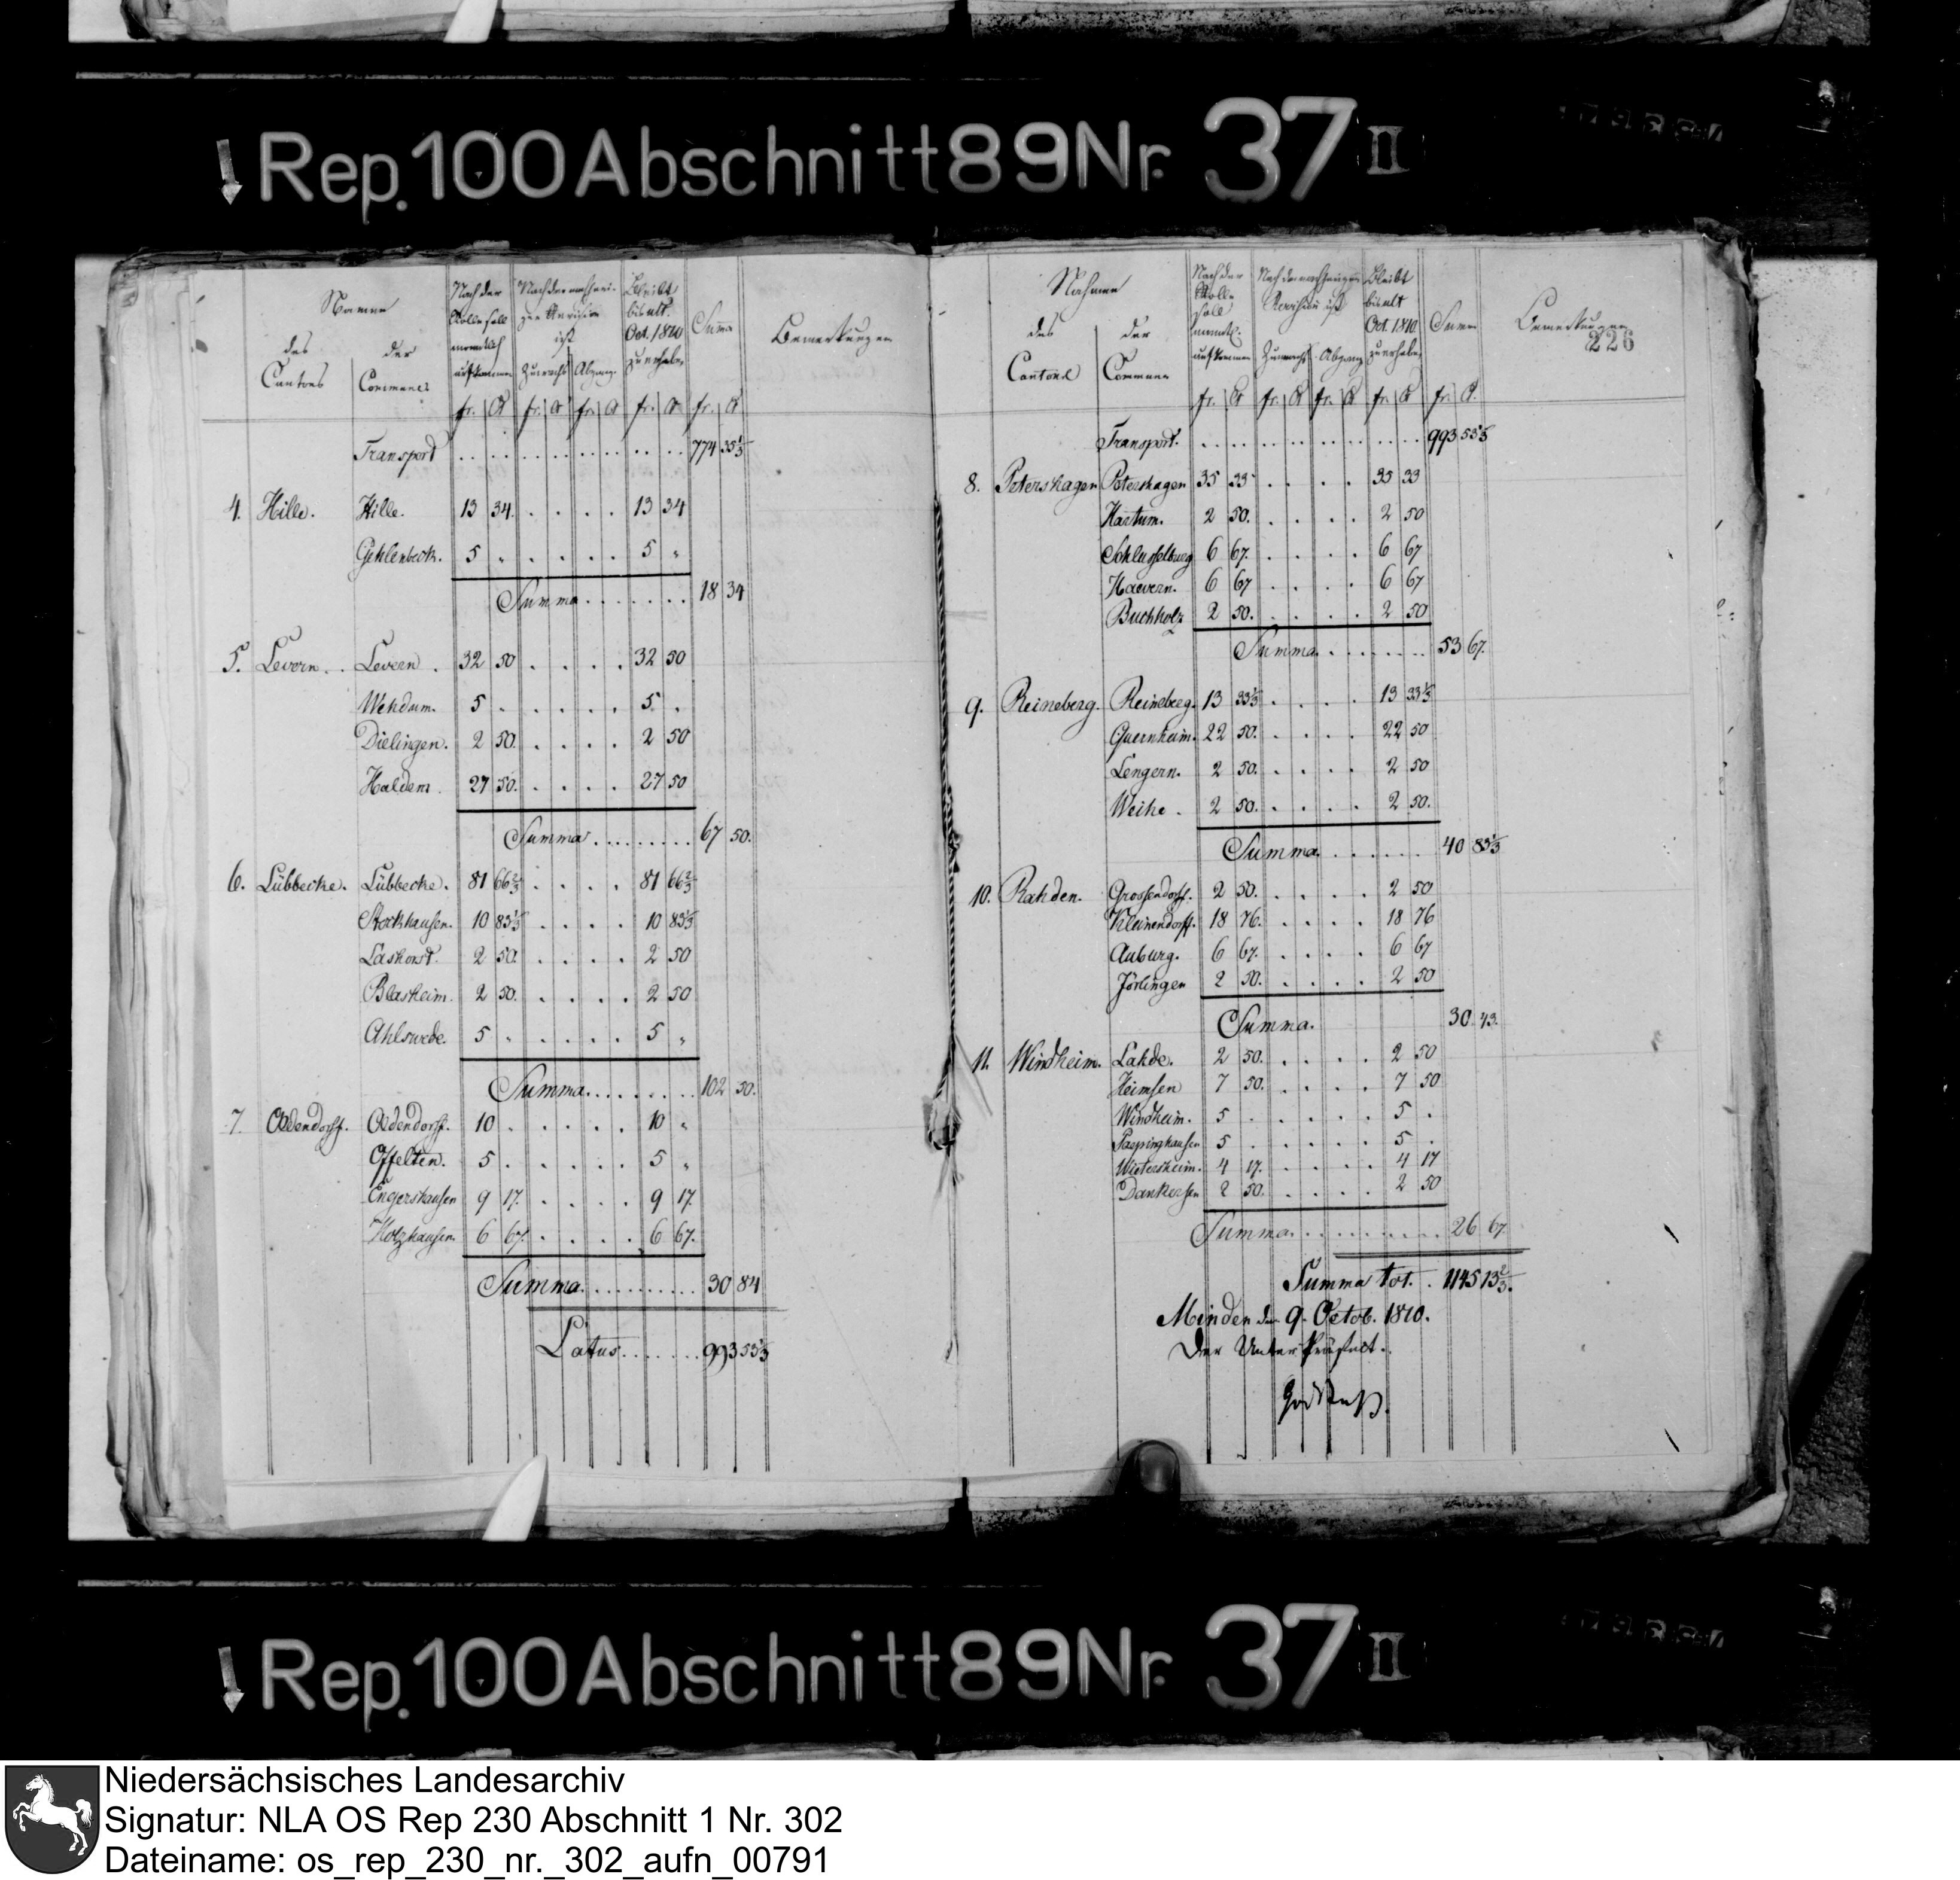 Rep. 100 Abschnitt 89 Nr. 37 II
Name
des Cantons
der Commune
Nach der Rolle soll monatlich aufkommen
Nach der mehrjährigen Revision ist
Zuwachs Abgang
Bleibt bis ult. Oct. 1810 zu erheben
Summa
Bemerkungen
fr. Ct fr. Ct fr. Ct fr. Ct fr. Ct
Transport . . . . . . . . . . 774 35⅓
4. Hille. Hille. 13 34. . . . . 13 34
Gehlenbeck. 5 „ . . . . 5 „
Summa . . . . . . . 18 34
5. Levern . . Levern . 32 50 . . . . 32 50
Wehdam. 5 . . . . . 5 „
Dielingen. 2 50. . . . . 2 50
Haldem. 27 50. . . . . 27 50
Summa . . . . . . . . 67 50.
6. Lübbecke. Lübbecke. 81 66⅔ . . . . 81 66⅔
Stockhausen. 10 83⅓ . . . . 10 83⅓
Lashorst. 2 50. . . . . 2 50
Blasheim. 2 50. . . . . 2 50
Ahlswede. 5 „ . . . . 5 „
Summa . . . . . . . 102 50.
7. Oldendorff. Oldendorff. 10 . . . . . 10 „
Offelten. 5 . . . . . 5 „
Engershausen 9 17. . . . . 9 17.
Holzhausen. 6 67. . . . . 6 67.
Summa . . . . . . . . . 30 84
Latus . . . . . . . 993 53⅓
Nahme
des Cantons
der Commune
Nach der Rolle soll monatl. aufkommen
Revision ist
Zuwachs Abgang
Bleibt bis ult Oct. 1810 zu erheben
Summa
Bemerkungen
226
fr. Ct fr. Ct fr. Ct fr. Ct fr. Ct.
Transport. . . . . . . . . . . 993 53⅓
8. Petershagen Petershagen 35 33 . . . . 35 33
Hartum. 2 50. . . . . 2 50
Schlusselburg 6 67. . . . . 6 67
Haevern. 6 67 . . . . 6 67
Buchholz 2 50. . . . . 2 50
Summa . . . . . . . 53 67.
9. Reineberg. Reineberg. 13 33⅓ . . . . 13 33⅓
Quernheim. 22 50. . . . . 22 50
Lengern. 2 50. . . . . 2 50
Weihe . 2 50. . . . . 2 50.
Summa . . . . . . 40 83⅓
10. Rahden. Grossendorff. 2 50. . . . . 2 50
Kleinendorff. 18 76. . . . . 18 76
Auburg. 6 67. . . . . 6 67
2 50. . . . . 2 50
Summa. 30 43.
11. Windheim. Lahde. 2 50. . . . . 2 50
Heimsen 7 50. . . . . 7 50
Windheim. 5 . . . . . 5 .
Paepinghausen 5 . . . . . 5 .
Wietersheim. 4 17. . . . . 4 17
Dankersen 2 50. . . . . 2 50
Summa . . . . . . . . . 26 67.
Summa tot. . 1145 13⅔.
Minden den 9. Octob. 1810.
Der Unter Präfect.
Rep. 100 Abschnitt 89 Nr. 37 II
Niedersächsisches Landesarchiv
Signatur: NLA OS Rep 230 Abschnitt 1 Nr. 302
Dateiname: os_rep_230_nr._302_aufn_00791